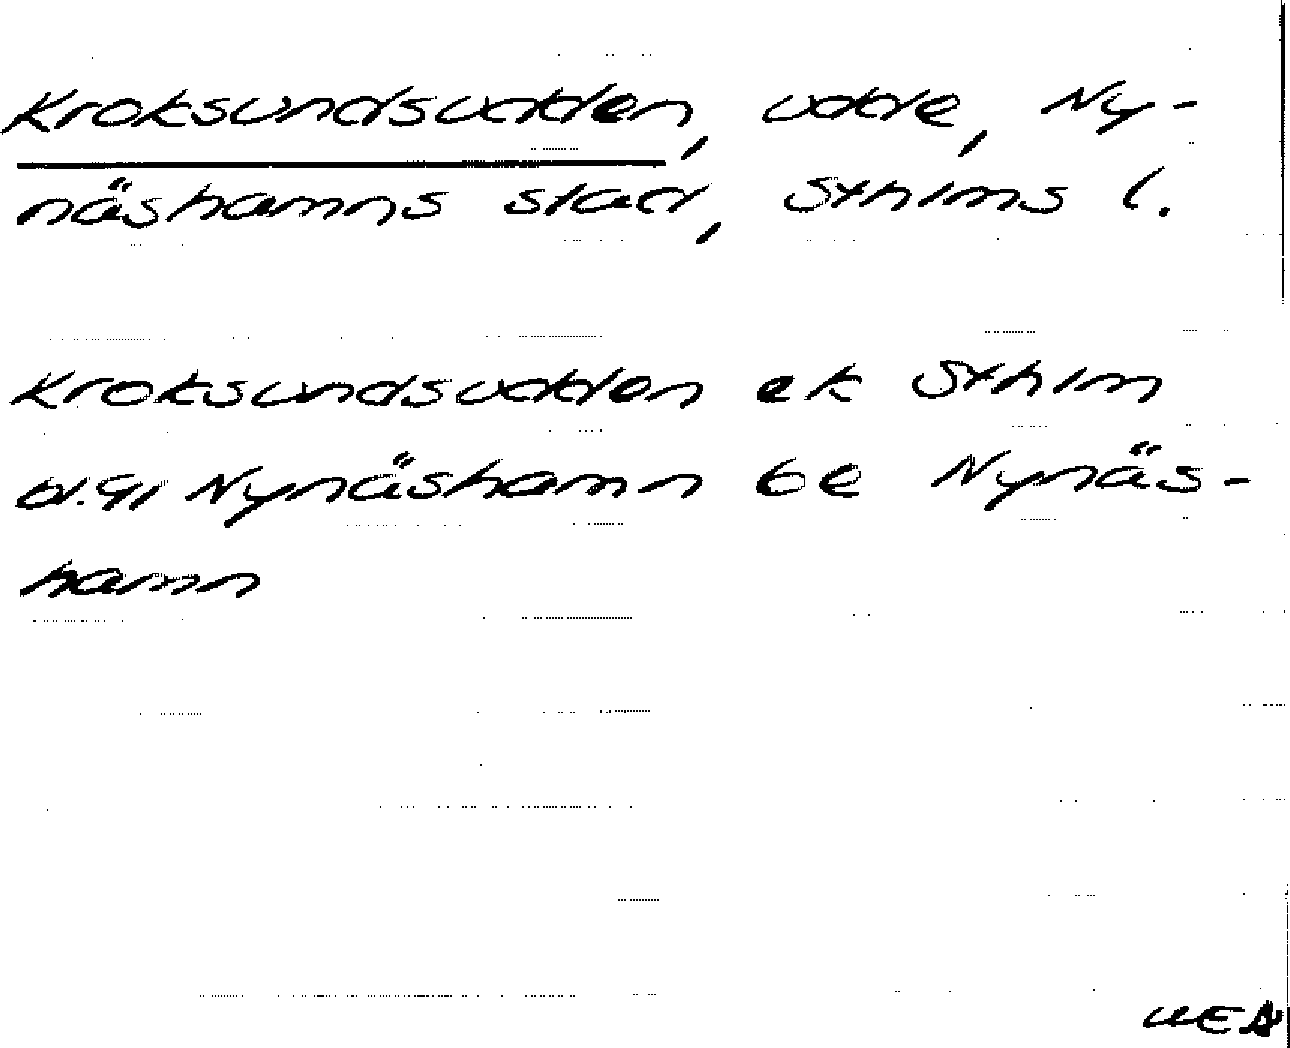 Kroksundsudden, udde, Ny-
näshamns stad, Sthlms l.
Kroksundsudden ek Sthlm
bl. 91 Nynäshamn 6e Nynäs-
hamn